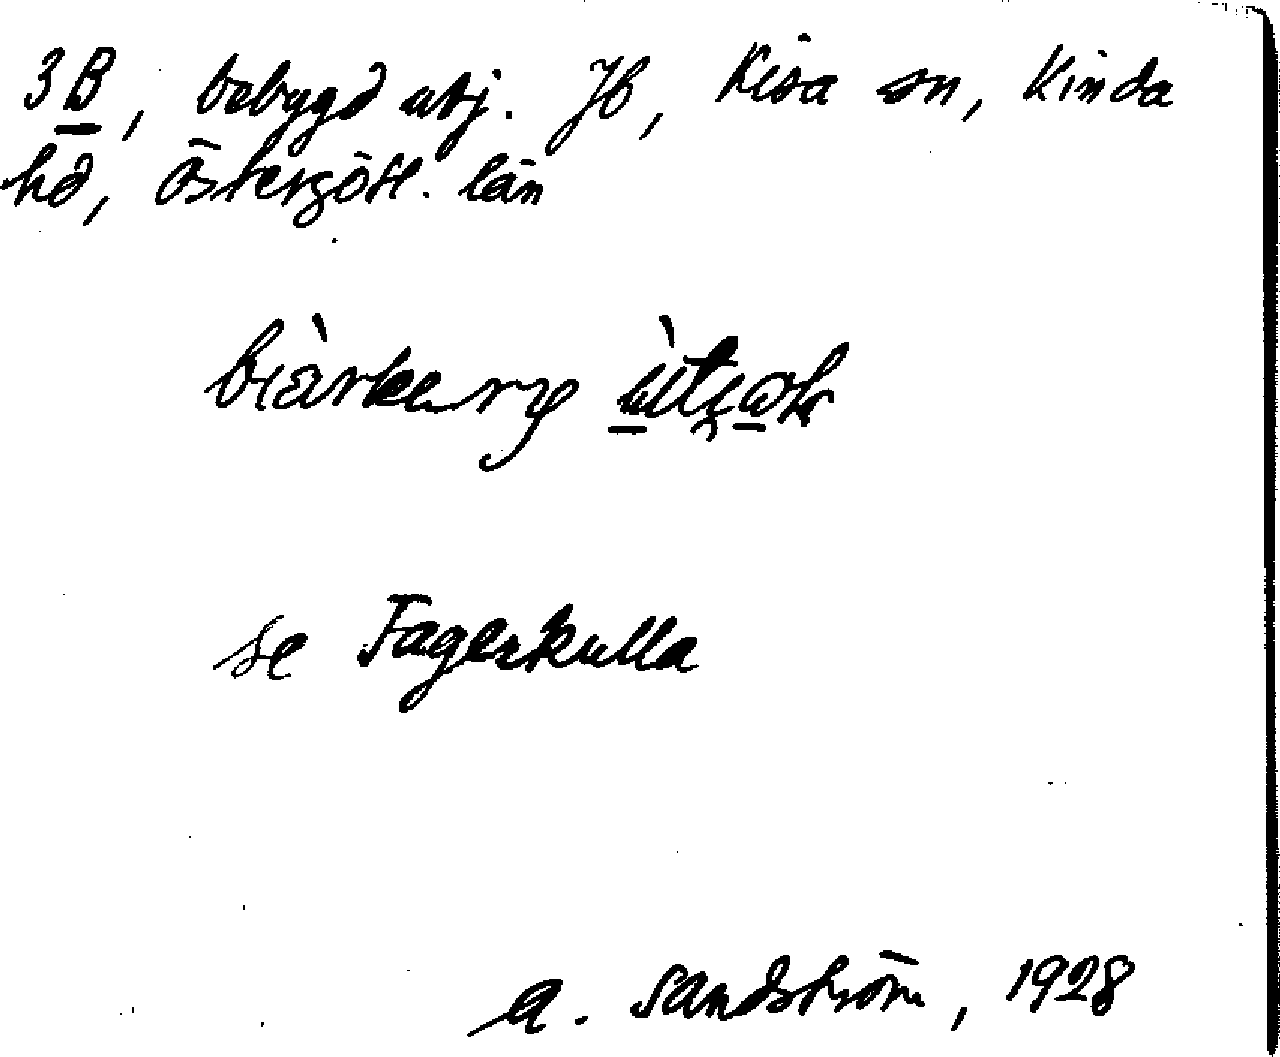 3B, bebygd avj. Jb, Kisa sn, Kinda
hd, Östergötl. län
se Fagerkulla
A. Sandström, 1928